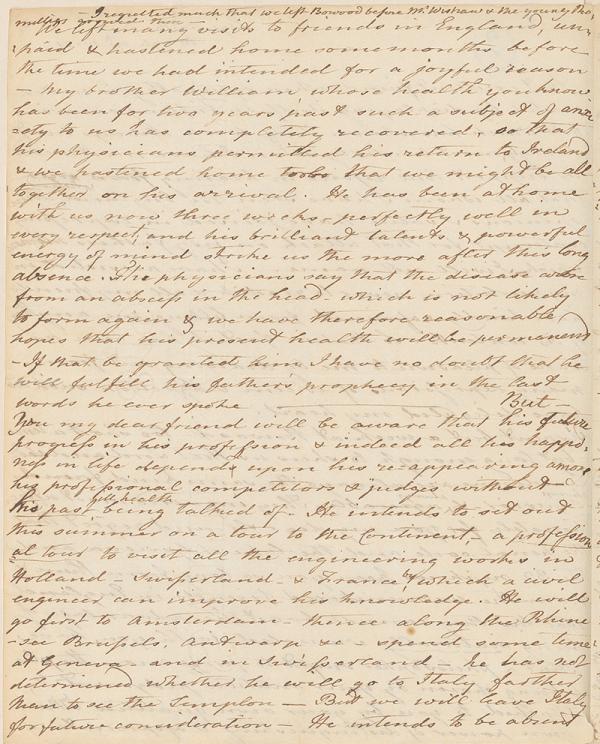 I regretted much that we left Bowood before Mr. Wishaw & the young
We left many visits to friends in England, un-
paid & hastened home some months before
the time we had intended for a joyful reason
- My brother William, whose health you know
has been for two years past such a subject of anxi-
ety to us has completely recovered, so that
his physicians permitted his return to Ireland
& we hastened home that we might be all
together on his arrival. He has been at home
with us now three weeks - perfectly well in
every respect, and his brilliant talents & powerful
energy of mind strike us the more after this long
absence. The physicians say that the disease
from an abscess in the head - which is not likely
to form again & we have therefore reasonable
hopes that his present health will be permanent
- If that be granted him I have no doubt that he
will fulfill his father's prophecy in the last
words he ever spoke - But -
You my dear friend will be aware that his future
progress in his profession & indeed all his happi-
ness in life depends upon his re-appearing among
his professional competitors & judges without
his past health being talked of - He intends to set out
this summer on a tour to the Continent, a profession-
al tour to visit all the engineering works in
Holland - Swisserland - & France by which a civil
engineer can improve his knowledge. He will
go first to Amsterdam - thence along the Rhine
- see Brussels, Antwerp &c - spend some time
at Geneva - and in Swisserland - he has not
determined whether he will go to Italy farther
than to see the Simplon - But we will leave Italy
for future consideration - He intends to be absent